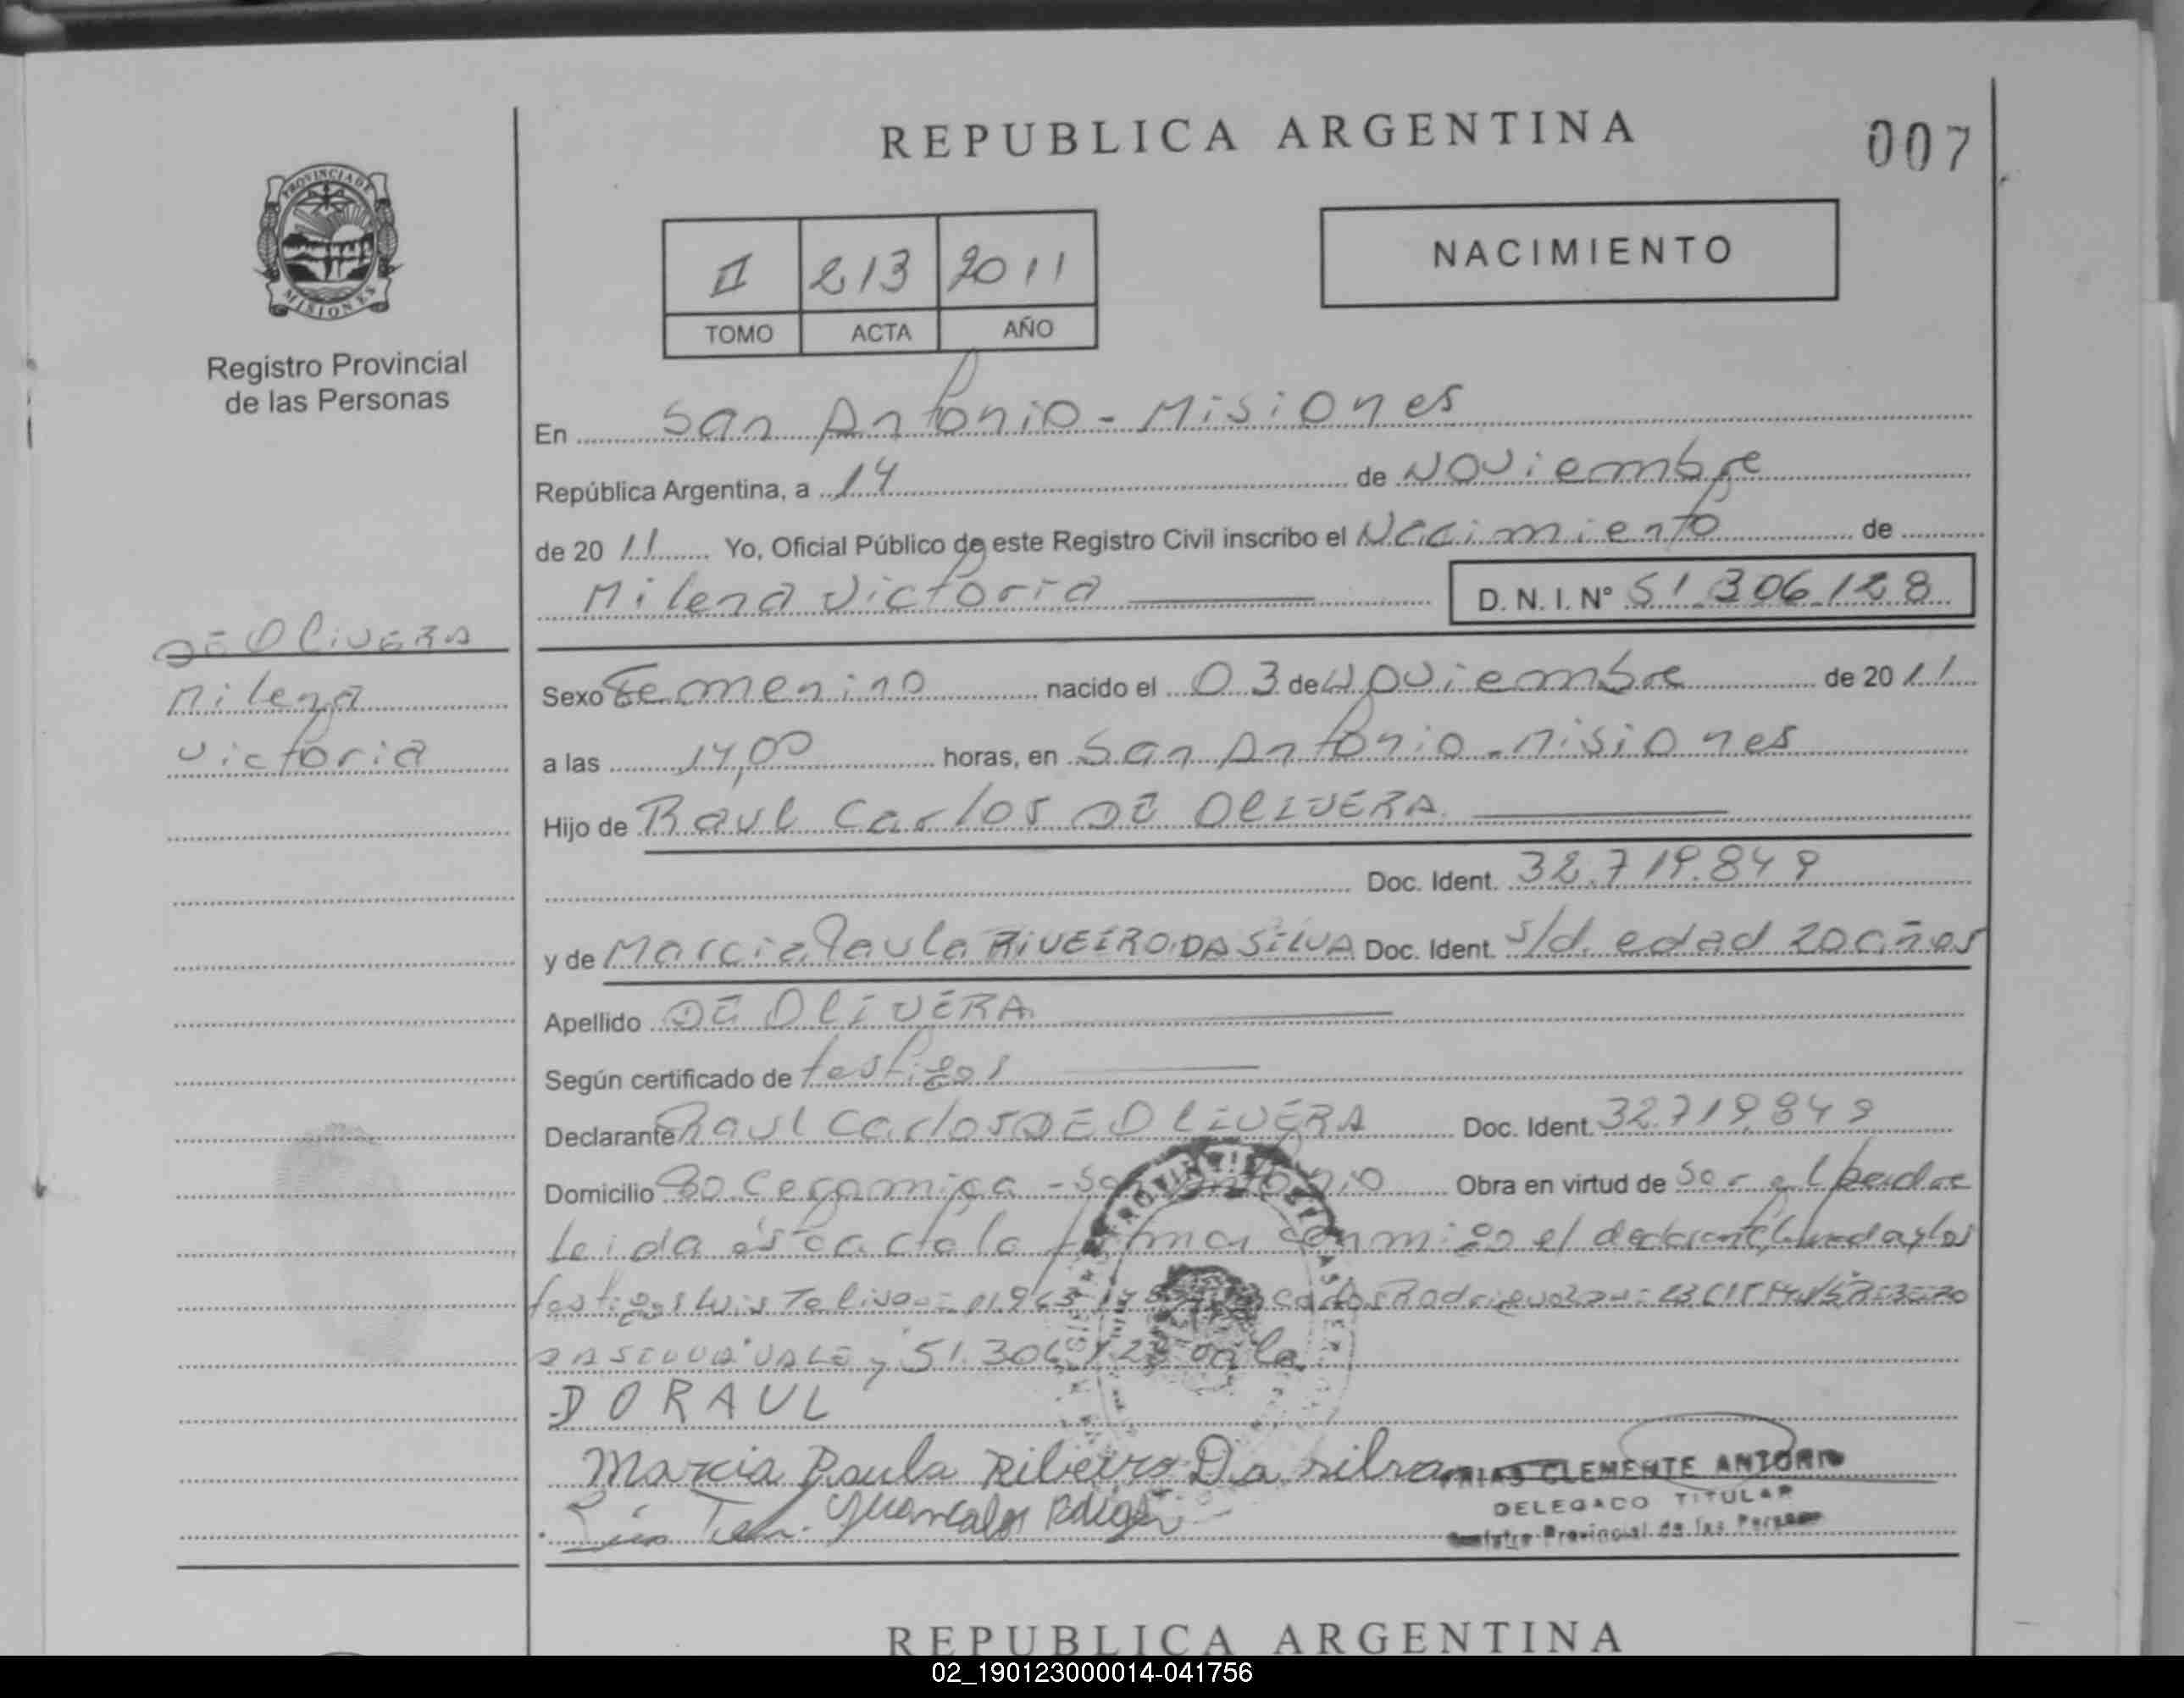 REPUBLICA ARGENTINA
007
PROVINCIA DE
MISIONES
Registro Provincial
de las Personas
II 213 2011
TOMO ACTA AÑO
NACIMIENTO
En San Antonio - Misiones
República Argentina, a 14 de Noviembre
de 20 11 Yo, Oficial Público de este Registro Civil inscribo el Nacimiento de
Milena Victoria D. N. I. Nº 51.306.128
DE OLIVERA
Milena
Victoria
Sexo Femenino nacido el 03 de Noviembre de 20 11
a las 14,00 horas, en San Antonio - Misiones
Hijo de Raul Carlos DE OLIVERA
Doc. Ident. 32.719.849
y de Marcia Paula RIVEIRO DA SILVA Doc. Ident. s/d. edad 20 años
Apellido DE OLIVERA
Según certificado de testigos
Declarante Raul Carlos DE OLIVERA Doc. Ident. 32.719.849
Domicilio Bo Ceramica - San Antonio Obra en virtud de Ser el padre
Leida esta acta la firman conmigo el declarante y los
testigos Luis
DA SILVA VALE y 51.306.128 vale
DO RAUL
Marcia Paula Ribeiro Da silva
Juan Carlos
FRIAS CLEMENTE ANTONIO
DELEGADO TITULAR
Registro Provincial de las Personas
REPUBLICA ARGENTINA
02_190123000014-041756